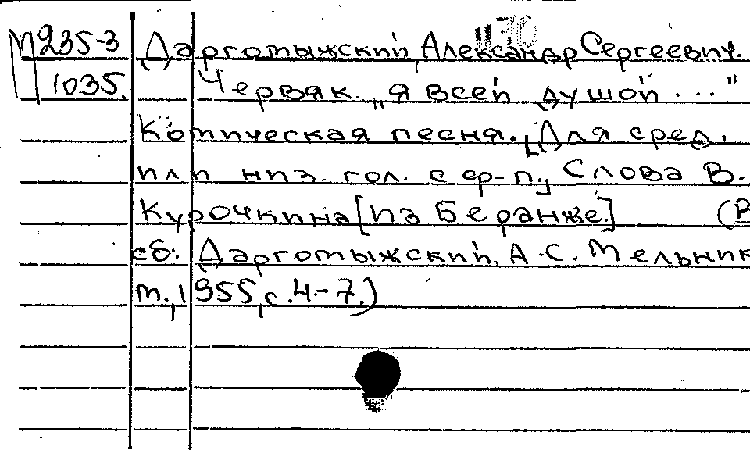 М235-3 Даргомыжский, Александр Сергеевич.
1035. Червяк. „Я всей душой ..."
Комическая песня. [Для сред.
или низ. гол. с ф-п.] Слова В.
Курочкина [из Беранже.] (В
сб: Даргомыжский, А.С. Мельник
М., 1955, с. 4-7.)